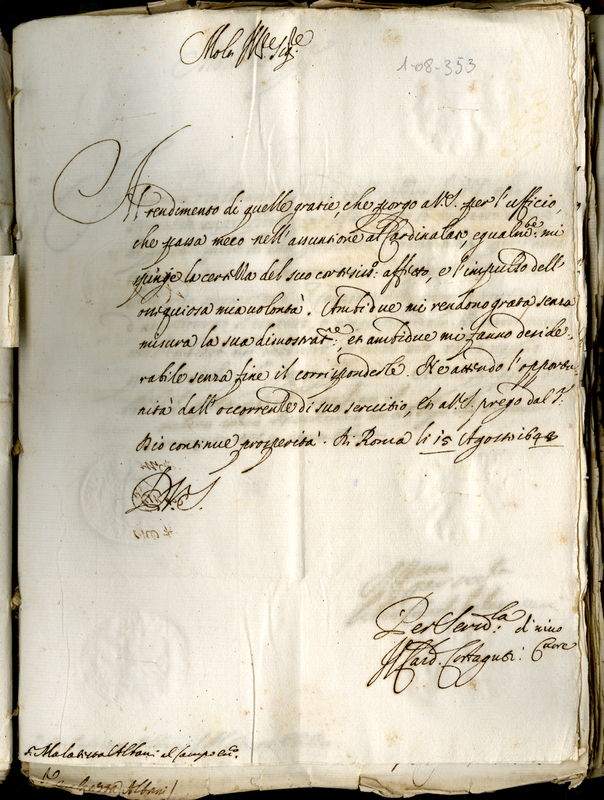 Molt' Ill.re Sig.re
1-08-353
Al rendimento di quelle gratie, che porgo a V.S. per l'ufficio,
che passa meco nell'assuntione al Cardinalato egualm.te mi
spinge la certezza del suo cortesiss.o affetto, e l'impulso dell'
ossequiosa mia volontà. Ambidue mi rendono grata senza
misura la sua dimostrat.ne et ambidue mi fanno deside-
rabile senza fine il corrisponderle. Ne attendo l'opportu-
nità dall'occorrenze di suo servitio, et a V.S. prego dal S.
Dio continue prosperità. Di Roma li 15 Agosto 1643
D. V. S.
Per Serv.la di vivo
Cuore
Il Card. Costaguti
S. Malatesta Albani al Campo
Albani